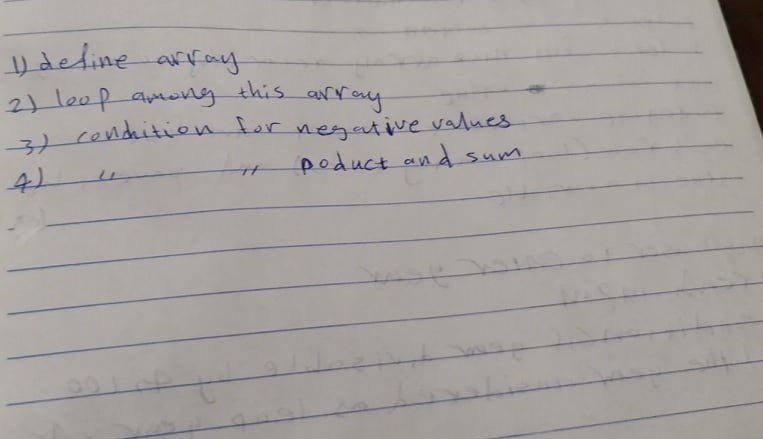 1) define array
2) loop among this array
3) condition for negative values
4) " " poduct and sum